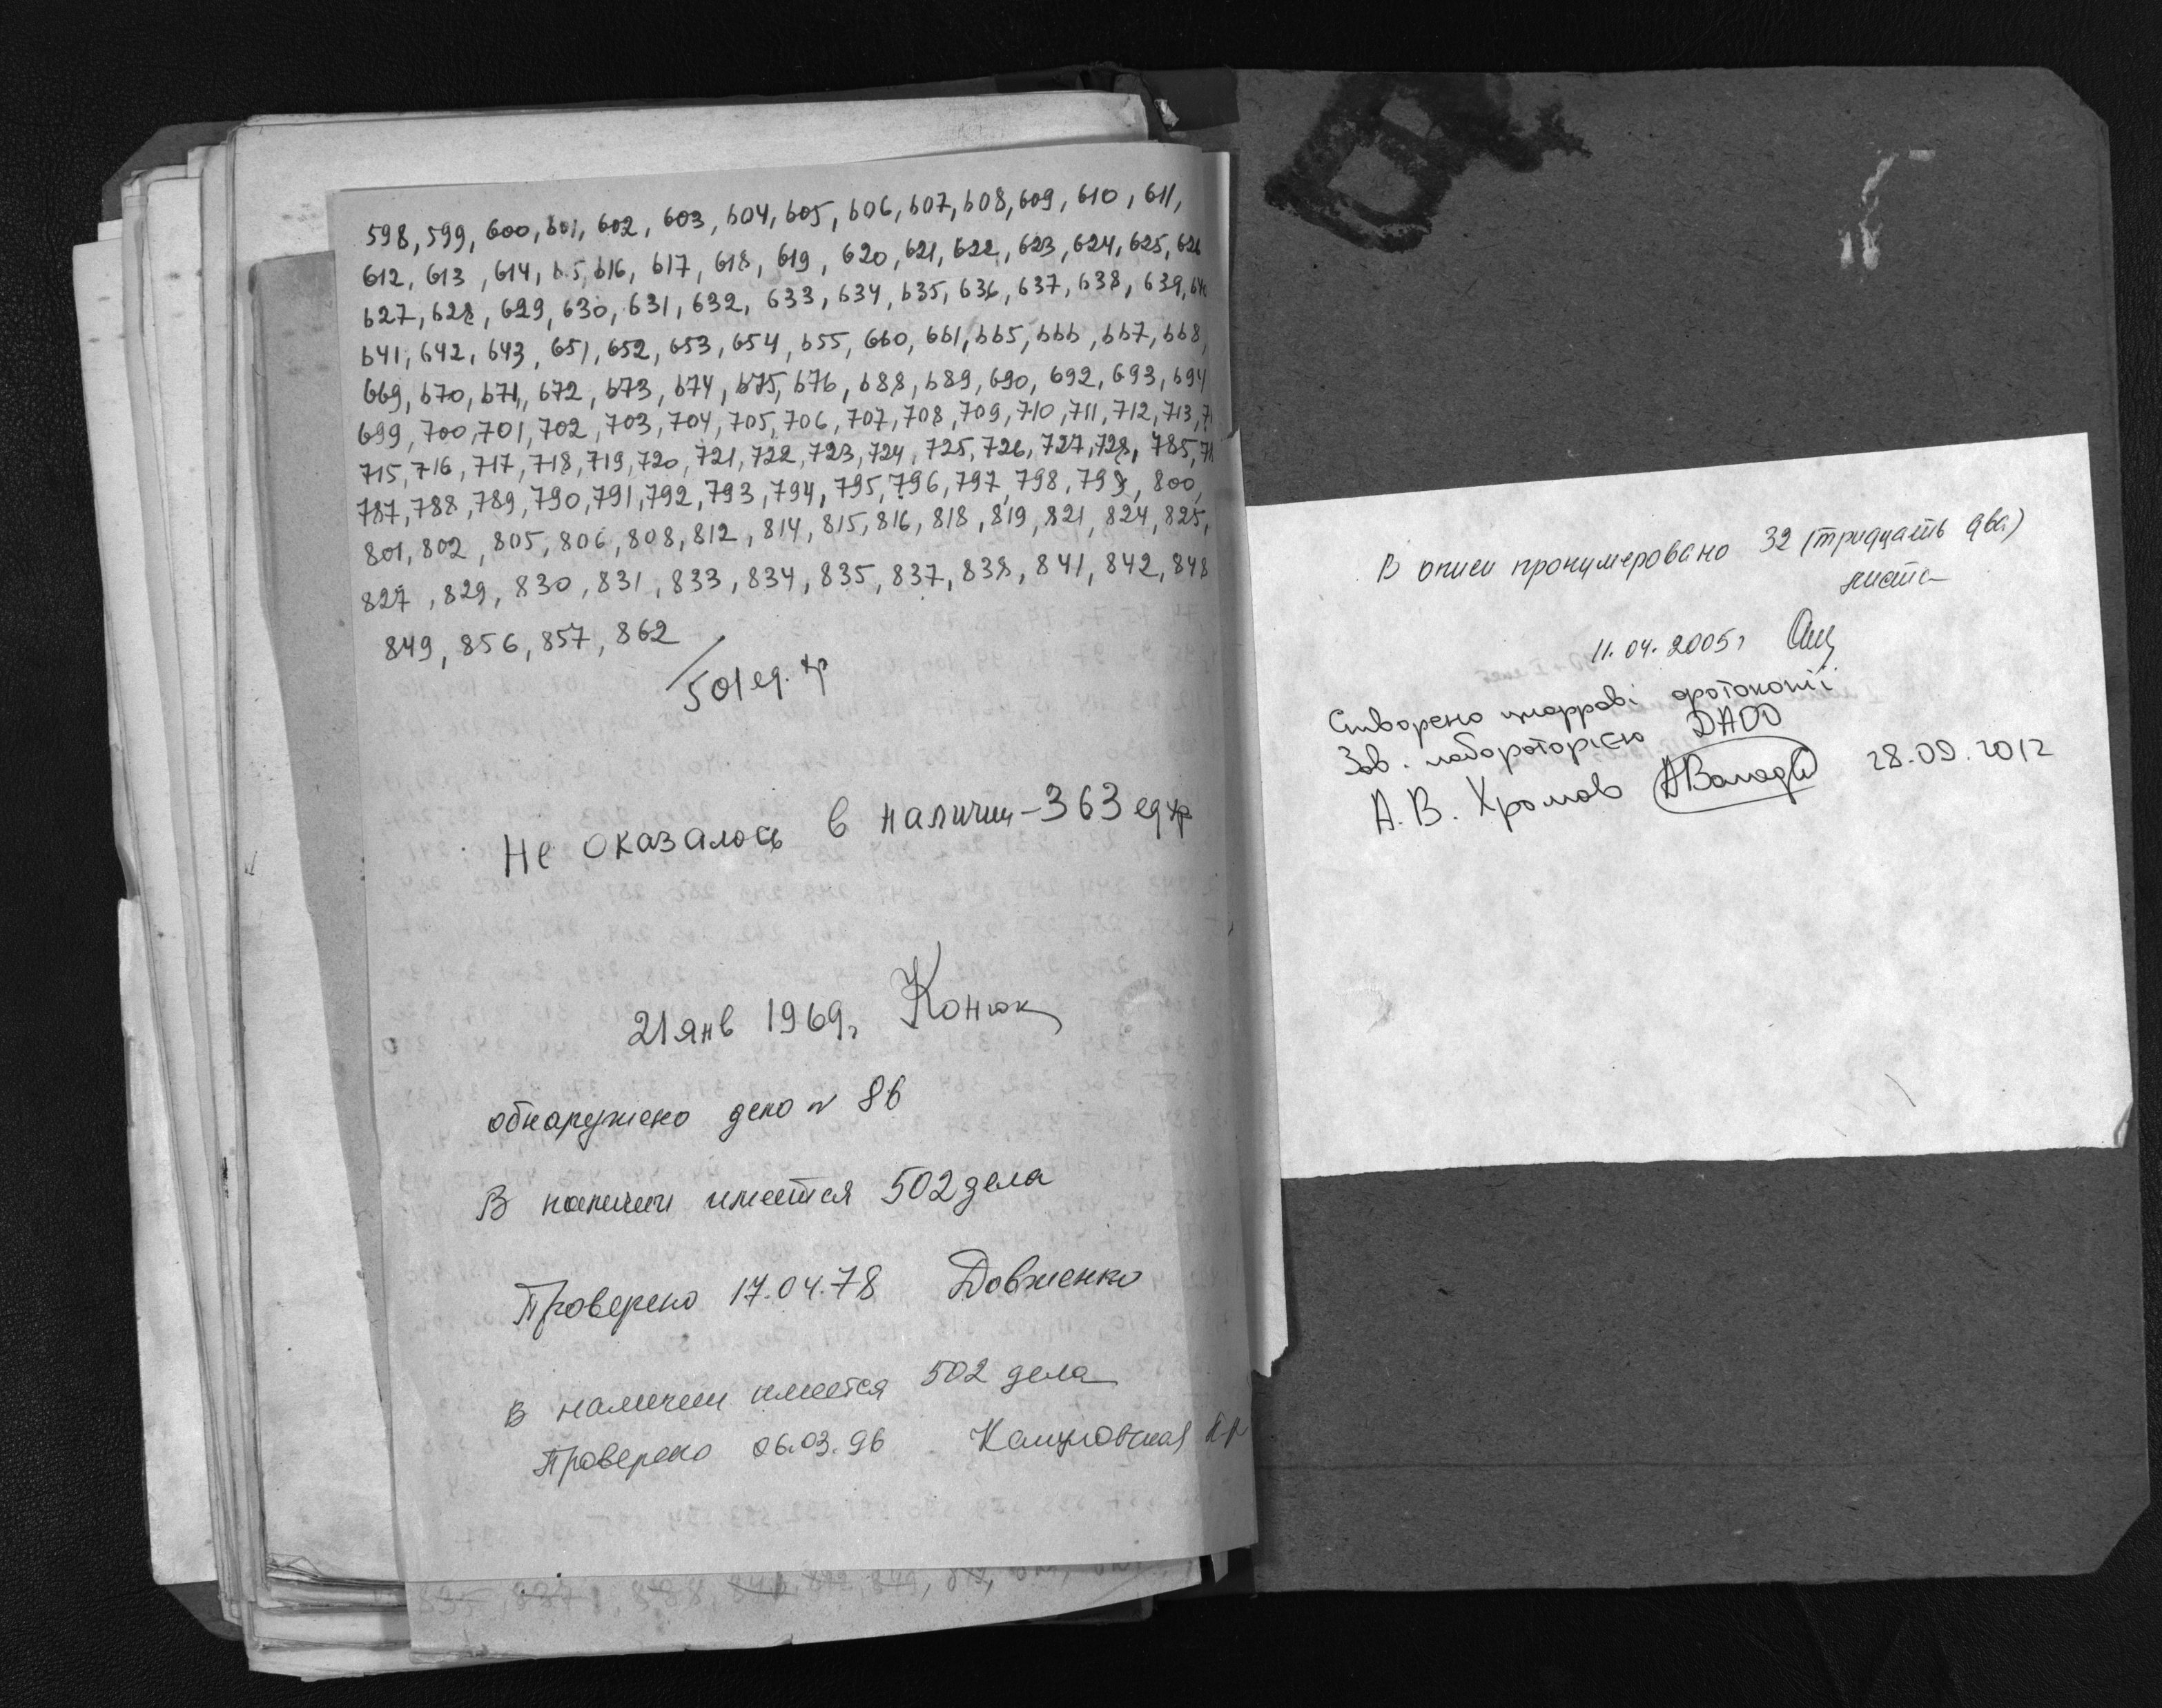 598, 599, 600, 601, 602, 603, 604, 605, 606, 607, 608, 609, 610, 611,
612, 613, 614, 615, 616, 617, 618, 619, 620, 621, 622, 623, 624, 625, 626
627, 628, 629, 630, 631, 632, 633, 634, 635, 636, 637, 638, 639, 640
641, 642, 643, 651, 652, 653, 654, 655, 660, 661, 665, 666, 667, 668,
669, 670, 671, 672, 673, 674, 675, 676, 688, 689, 690, 692, 693, 694
699, 700, 701, 702, 703, 704, 705, 706, 707, 708, 709, 710, 711, 712, 713,
715, 716, 717, 718, 719, 720, 721, 722, 723, 724, 725, 726, 727, 728, 785,
787, 788, 789, 790, 791, 792, 793, 794, 795, 796, 797, 798, 799, 800,
801, 802, 805, 806, 808, 812, 814, 815, 816, 818, 819, 821, 824, 825,
827, 829, 830, 831, 833, 834, 835, 837, 838, 841, 842, 848
849, 856, 857, 862
501 ед. хр
Не оказалось в наличии - 363 ед хр
21 янв 1969г Конюк
обнаружено дело № 86
В наличии имеется 502 дела
Проверено 17.04.78 Довженко
В наличии имеется 502 дела
Проверено 06.03.96
В описи пронумеровано 32 (тридцать два)
листа
11.04.2005г
Створено цифрові фотокопії
Зав. лабораторією ДАОО
А.В. Хромов 28.09.2012